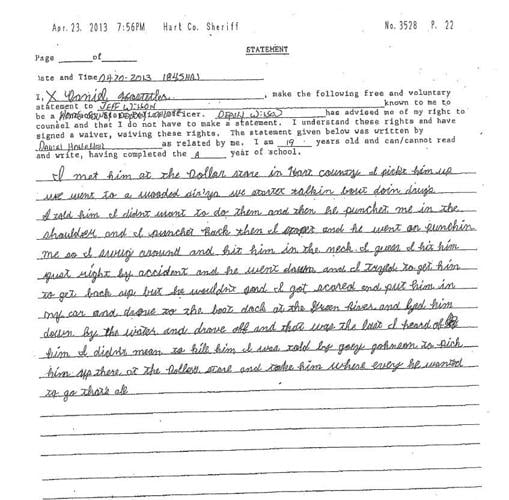 Apr. 23. 2013 7:56PM Hart Co. Sheriff No. 3528 P. 22
STATEMENT
Page of
Date and Time 04-20-2013 1845hrs
I, X Daniel, make the following free and voluntary
statement to Jeff Wilson known to me to
be a officer. Deputy Wilson has advised me of my right to
counsel and that I do not have to make a statement. I understand these rights and have
signed a waiver, waiving these rights. The statement given below was written by
Daniel as related by me. I am 19 years old and can/cannot read
and write, having completed the 8 year of school.
I met him at the Dollar store in Hart country I pickt him up
we went to a wooded air'ya we startet talkin bout doin drugs
I told him I didnt want to do them and then he punchet me in the
shoulder and I punchet back then I stopet and he went on punchin
me so I swung around and hit him in the neck I guess I hit him
just right by accident and he went down and I tryed to get him
to get back up but he wouldn't and I got scared and put him in
my car and drove to the boat dock at the Green River and layed him
down by the water and drove off and that was the last I heard of
him I didnt mean to kill him I was told by joey johnson to pick
him up there at the Dollar store and take him where every he wanted
to go thats all